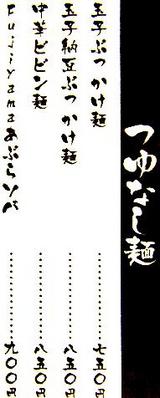 つゆなし麺
玉子ぶっかけ麺…………七五〇円
玉子納豆ぶっかけ麺…………八五〇円
中華ビビン麺…………八五〇円
Fujiyamaあぶらソバ…………九〇〇円